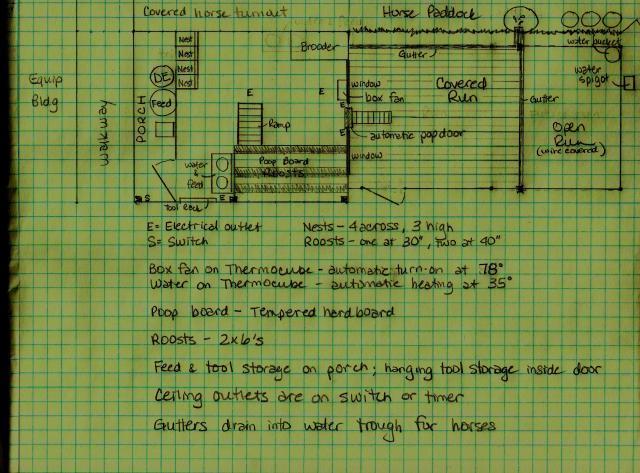 Covered horse turnout
Horse Paddock
Nest
Nest
Nest
Nest
Brooder
Gutter
water bucket
water spigot
Equip
Bldg
walkway
PORCH
DE
Feed
E
E
window
box fan
E
Covered
Run
Gutter
Ramp
E
automatic popdoor
Open
Run
(wire covered)
water
&
feed
Poop Board
Roosts
window
S
Tool Rack
E
E= Electrical outlet
Nests - 4 across, 3 high
S= Switch
Roosts - one at 30", two at 40"
Box fan on Thermocube - automatic turn-on at 78°
Water on Thermocube - automatic heating at 35°
Poop board - Tempered hardboard
Roosts - 2x6's
Feed & tool storage on porch; hanging tool storage inside door
Ceiling outlets are on switch or timer
Gutters drain into water trough for horses